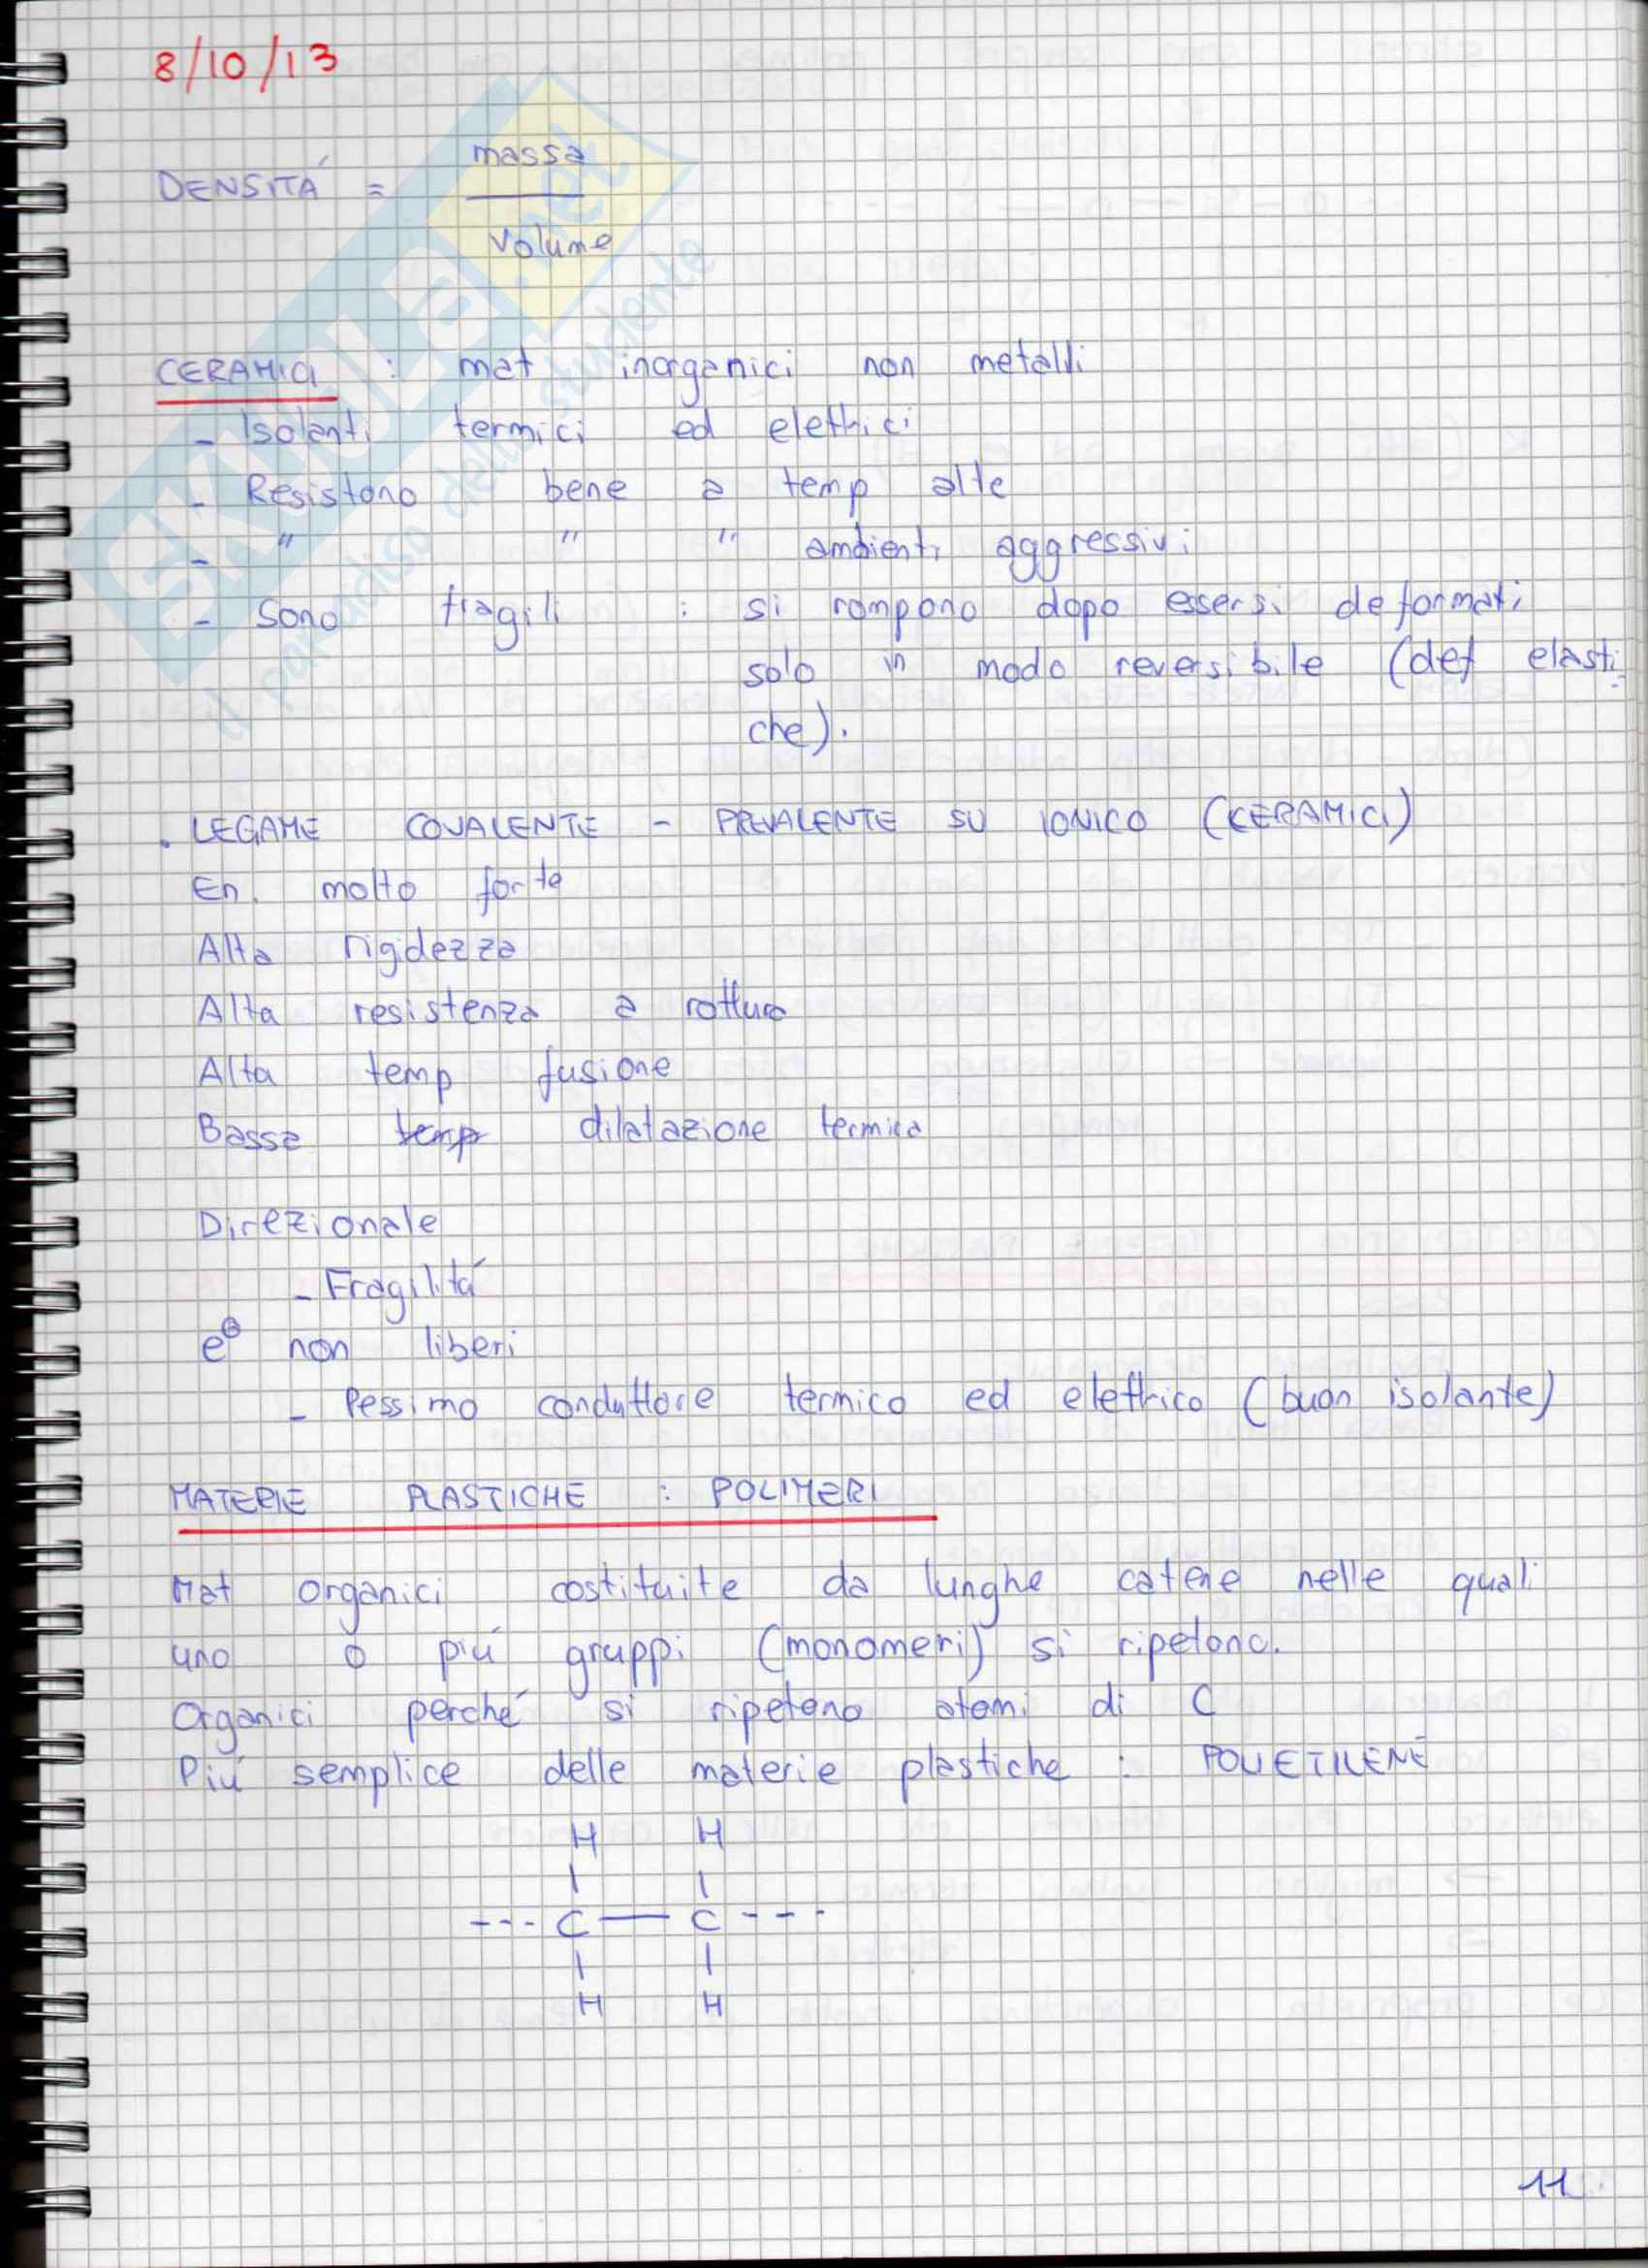 8/10/13
DENSITÁ = massa
volume
CERAMICI : mat inorganici non metalli
- Isolanti termici ed elettrici
- Resistono bene a temp alte
- " " " ambienti aggressivi
- Sono fragili : si rompono dopo essersi deformati
solo in modo reversibile (def elasti-
che).
. LEGAME COVALENTE - PREVALENTE SU IONICO (CERAMICI)
En. molto forte
Alta rigidezza
Alta resistenza a rottura
Alta temp fusione
Bassa temp dilatazione termica
Direzionale
- Fragilitá
e⊖ non liberi
- Pessimo conduttore termico ed elettrico (buon isolante)
MATERIE PLASTICHE : POLIMERI
Mat organici costituite da lunghe catene nelle quali
uno o piú gruppi (monomeri) si ripetono.
Organici perché si ripetono atomi di C
Piú semplice delle materie plastiche : POLIETILENE
H H
| |
--- C — C ---
| |
H H
11
SKUOLA.net
il paradiso dello studente